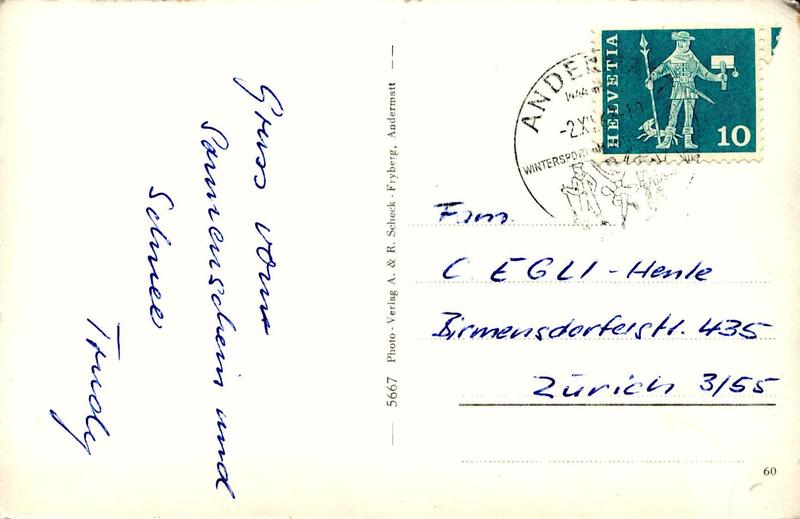 Gruss vom
Sonnenschein und
Schnee
Trudy
5667 Photo-Verlag A. & R. Scheck-Fryberg, Andermatt
HELVETIA
10
ANDER
-2.XI
WINTERSPORT
Fam.
C. EGLI-Henle
Birmensdorferstr. 435
Zürich 3/55
60